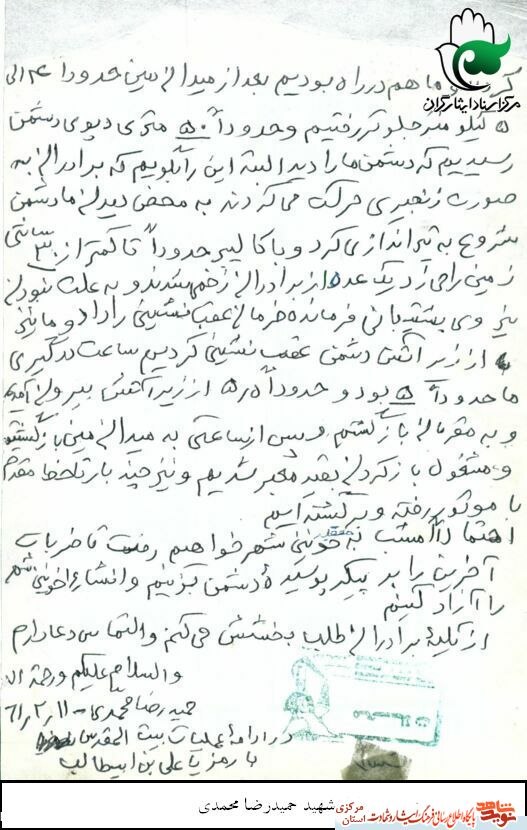 مرکز اسناد ایثارگران
و ما هم در راه بودیم بعد از میدان مین حدوداً ۴ الی
۵ کیلومتر جلوتر رفتیم و حدوداً ۵۰ متری دپوی دشمن
رسیدیم که دشمن ما را دید البته این را بگویم که برادران به
صورت زنجیری حرکت می کردند به محض دیدن ما دشمن
شروع به تیراندازی کرد و با کالیبر حدوداً تا کمتر از ۳۰ سانتی
زمین را می زد یک عده از برادران زخمی شدند و به علت نبودن
نیروی پشتیبانی فرمانده فرمان عقب نشینی را داد و ما نیز
از زیر آتش دشمن عقب نشینی کردیم ساعت درگیری
ما حدوداً ۵ بود و حدوداً ۵/۵ از زیر آتش بیرون آمدیم
و به مقرمان بازگشتیم و پس از ساعتی به میدان مین بازگشتیم
و مشغول باز کردن بقیه معبر شدیم و نیز چند بار تا خط مقدم
با موتور رفته و برگشته ایم
احتمالاً امشب به خونین شهر خواهیم رفت تا ضربات
آخرین را بر پیکر پوسیدۀ دشمن بزنیم و انشاءا خونین شهر
را آزاد کنیم
از کلیۀ برادران طلب بخشش می کنم و التماس دعا دارم
والسلام علیکم و رحمة ال
حمیدرضا محمدی - ۶۱/۲/۱۱
در ادامۀ عملیات بیت المقدس
با رمز یا علی بن ابیطالب
شهید حمیدرضا محمدی
نوید شاهد
پایگاه اطلاع رسانی فرهنگ ایثار و شهادت استان مرکزی